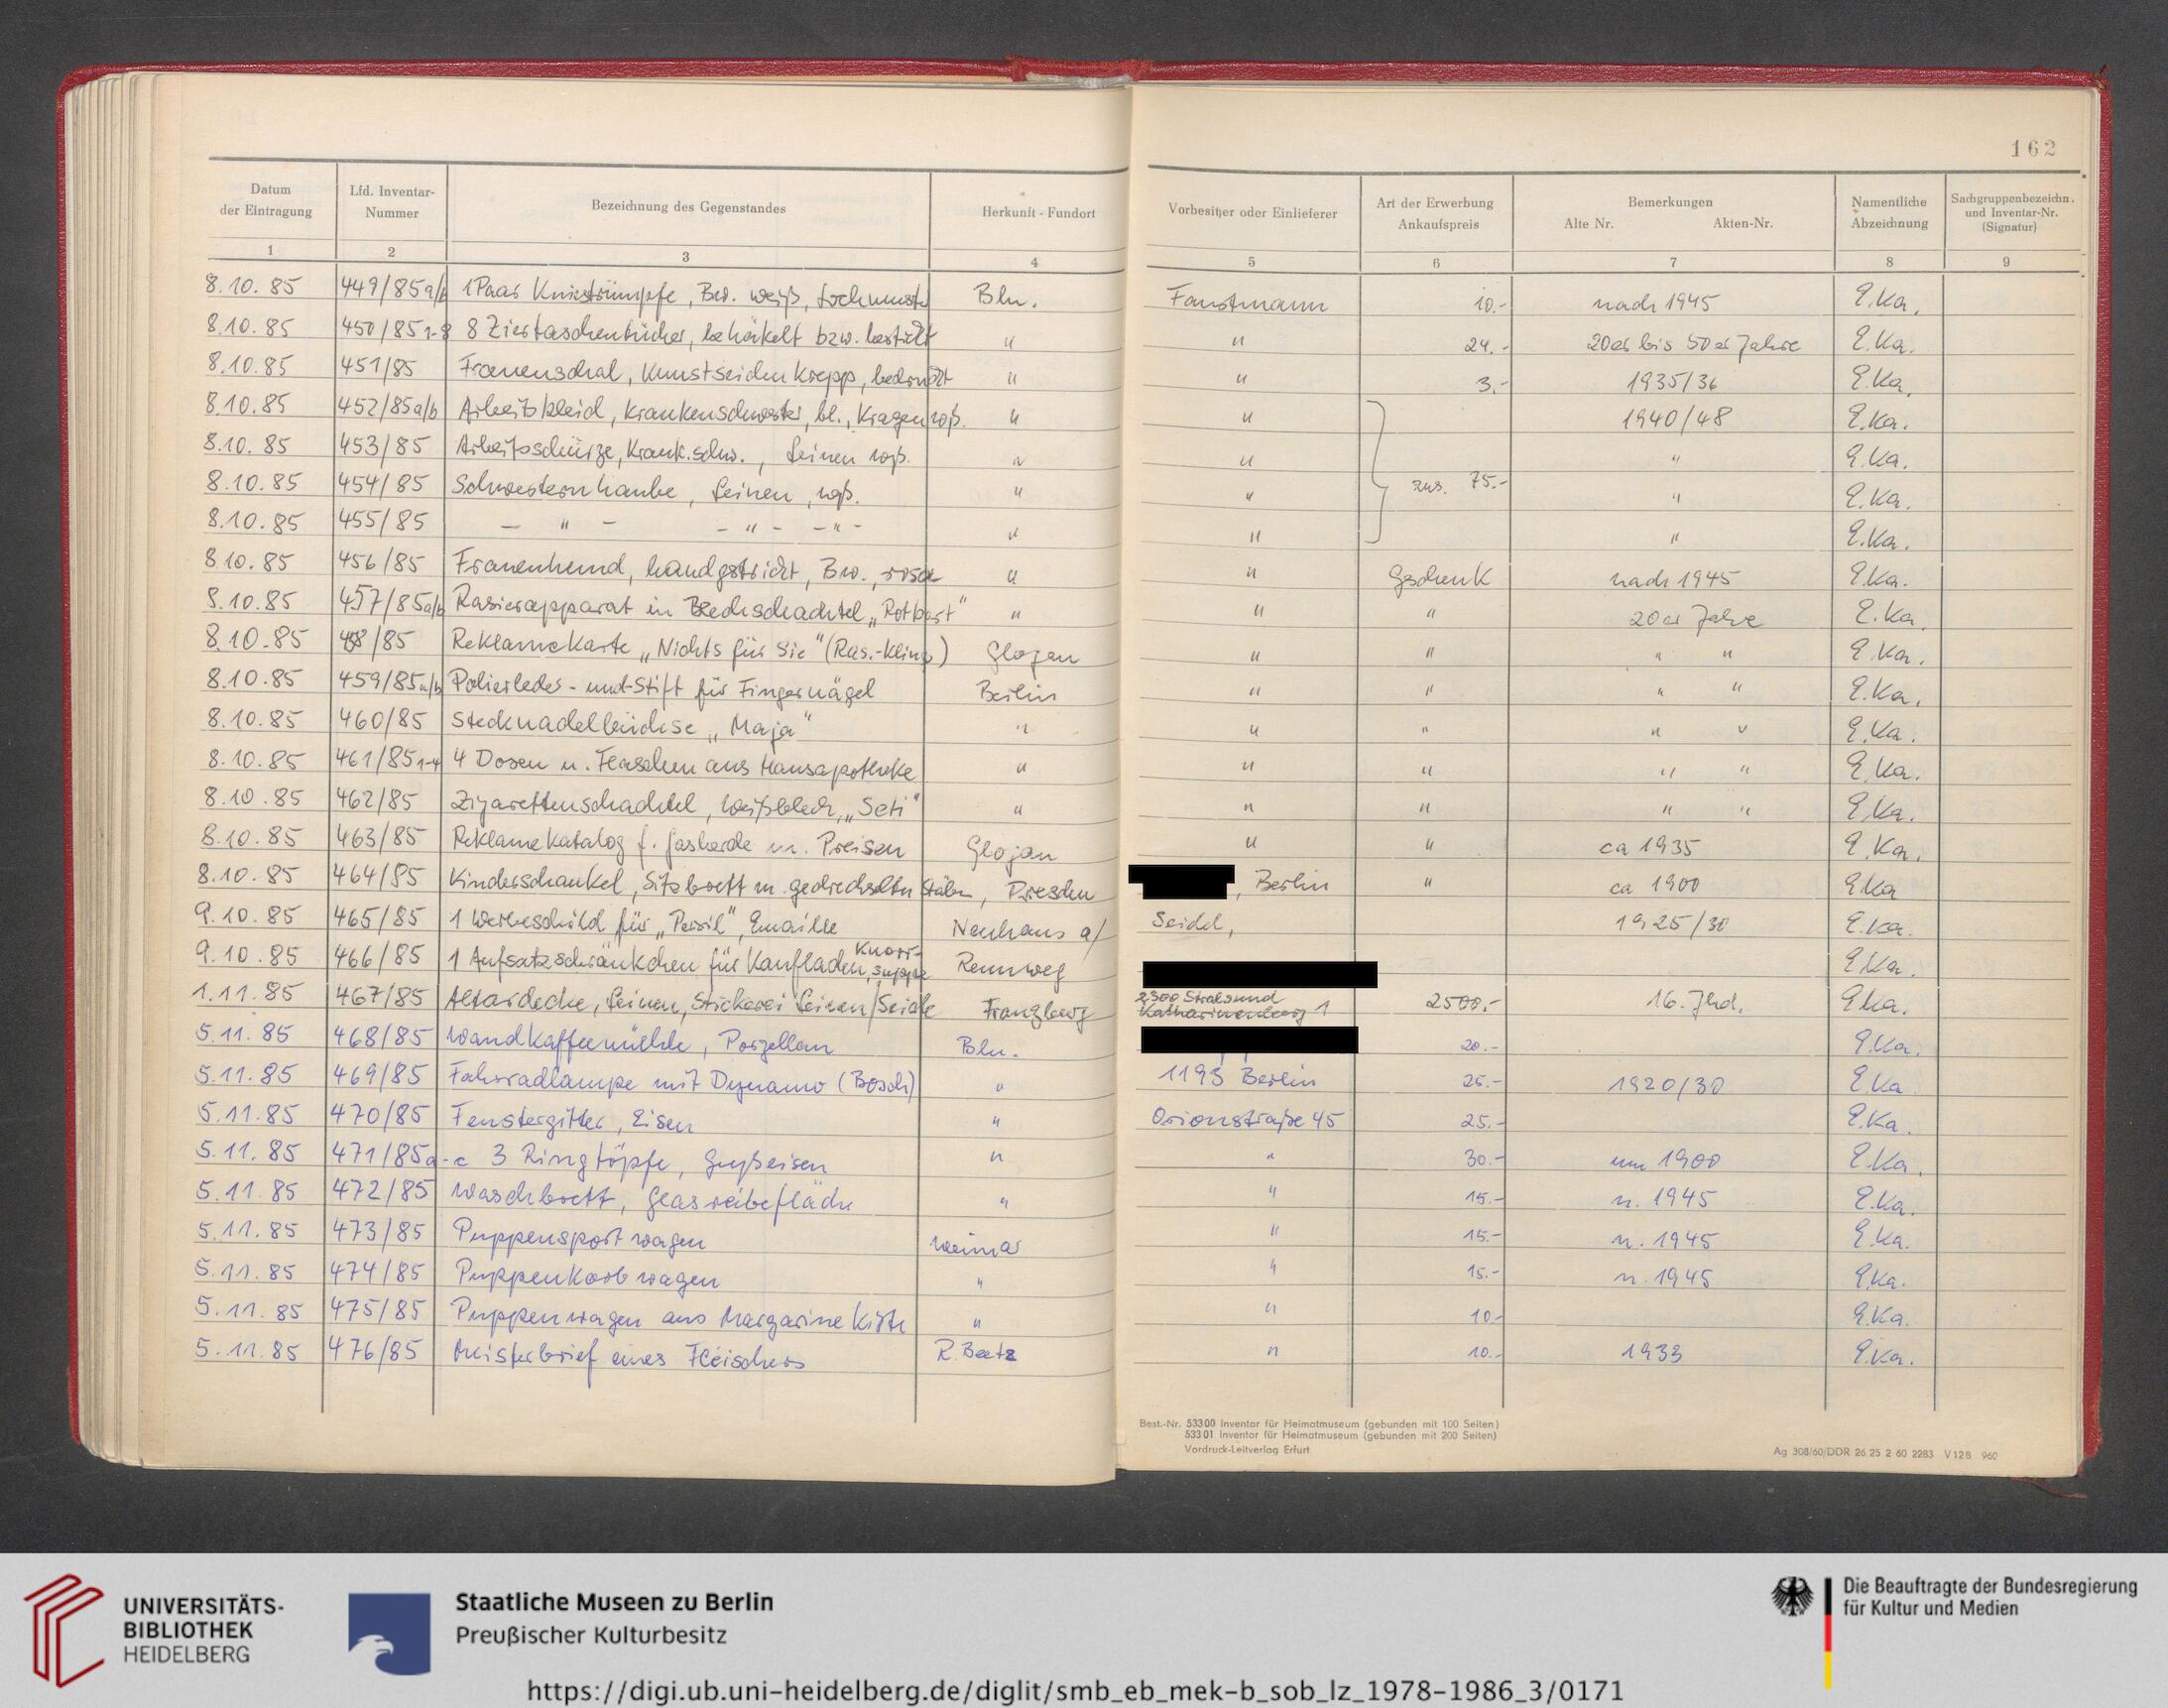 162
Datum der Eintragung | Lfd. Inventar-Nummer | Bezeichnung des Gegenstandes | Herkunft - Fundort | Vorbesitzer oder Einlieferer | Art der Erwerbung Ankaufspreis | Bemerkungen Alte Nr. Akten-Nr. | Namentliche Abzeichnung | Sachgruppenbezeichn. und Inventar-Nr. (Signatur)
1 | 2 | 3 | 4 | 5 | 6 | 7 | 8 | 9
8.10.85 | 449/85a/b | 1 Paar Kniestrümpfe, Bw. weiß, Lochmuster | Bln. | Faustmann | 10.- | nach 1945 | E.Ka.
8.10.85 | 450/85 1-8 | 8 Ziertaschentücher, behäkelt bzw. bestickt | " | " | 24.- | 20er bis 50er Jahre | E.Ka.
8.10.85 | 451/85 | Frauenschal, Kunstseidenkrepp, bedruckt | " | " | 3.- | 1935/36 | E.Ka.
8.10.85 | 452/85a/b | Arbeitskleid, Krankenschwester, bl., Kragen wß. | " | " | 1940/48 | E.Ka.
8.10.85 | 453/85 | Arbeitsschürze, Krank.schw., Leinen wß. | " | " | " | E.Ka.
8.10.85 | 454/85 | Schwesternhaube, Leinen, wß. | " | " | zus. 75.- | " | E.Ka.
8.10.85 | 455/85 | - " - - " - - " - | " | " | " | E.Ka.
8.10.85 | 456/85 | Frauenhemd, handgestrickt, Bw., rosa | " | " | Geschenk | nach 1945 | E.Ka.
8.10.85 | 457/85a/b | Rasierapparat in Blechschachtel „Rotbart" | " | " | " | 20er Jahre | E.Ka.
8.10.85 | 458/85 | Reklamekarte „Nichts für Sie" (Ras.-Kling.) | Glogau | " | " | " " | E.Ka.
8.10.85 | 459/85a/b | Polierleder- und-Stift für Fingernägel | Berlin | " | " | " " | E.Ka.
8.10.85 | 460/85 | Stecknadelbüchse „Maja" | " | " | " | " " | E.Ka.
8.10.85 | 461/85 1-4 | 4 Dosen u. Flaschen aus Hausapotheke | " | " | " | " " | E.Ka.
8.10.85 | 462/85 | Zigarettenschachtel, Weißblech, „Seti" | " | " | " | " " | E.Ka.
8.10.85 | 463/85 | Reklamekatalog f. Gasherde m. Preisen | Glogau | " | " | ca 1935 | E.Ka.
8.10.85 | 464/85 | Kinderschaukel, Sitzbrett m. gedrechselten Stäben, Dresden | , Berlin | " | ca 1900 | E.Ka
9.10.85 | 465/85 | 1 Werbeschild für „Persil", Emaille | Neuhaus a/ | Seidel, | 1925/30 | E.Ka.
9.10.85 | 466/85 | 1 Aufsatzschränkchen für Kaufladen, Knorr-suppe | Rennweg | E.Ka.
1.11.85 | 467/85 | Altardecke, Leinen, Stickerei Leinen/Seide | Franzburg | 2300 Stralsund Katharinenberg 1 | 2500.- | 16. Jhd. | E.Ka.
5.11.85 | 468/85 | Wandkaffeemühle, Porzellan | Bln. | 20.- | E.Ka.
5.11.85 | 469/85 | Fahrradlampe mit Dynamo (Bosch) | " | 1195 Berlin | 25.- | 1920/30 | E.Ka
5.11.85 | 470/85 | Fenstergitter, Eisen | " | Orionstraße 45 | 25.- | E.Ka.
5.11.85 | 471/85a-c | 3 Ringtöpfe, Gußeisen | " | " | 30.- | um 1900 | E.Ka.
5.11.85 | 472/85 | Waschbrett, Glasreibefläche | " | " | 15.- | n. 1945 | E.Ka.
5.11.85 | 473/85 | Puppensportwagen | Weimar | " | 15.- | n. 1945 | E.Ka.
5.11.85 | 474/85 | Puppenkorbwagen | " | " | 15.- | n. 1945 | E.Ka.
5.11.85 | 475/85 | Puppenwagen aus Margarinekiste | " | " | 10.- | E.Ka.
5.11.85 | 476/85 | Meisterbrief eines Fleischers | R. Beetz | " | 10.- | 1933 | E.Ka.
Best.-Nr. 53300 Inventar für Heimatmuseum (gebunden mit 100 Seiten)
53301 Inventar für Heimatmuseum (gebunden mit 200 Seiten)
Vordruck-Leitverlag Erfurt
Ag 308/60/DDR 26 25 2 60 2283 V 12 8 960
UNIVERSITÄTS-
BIBLIOTHEK
HEIDELBERG
Staatliche Museen zu Berlin
Preußischer Kulturbesitz
Die Beauftragte der Bundesregierung
für Kultur und Medien
https://digi.ub.uni-heidelberg.de/diglit/smb_eb_mek-b_sob_lz_1978-1986_3/0171